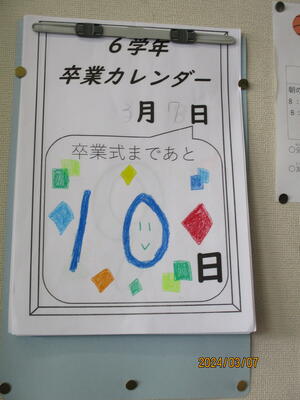 6学年
卒業カレンダー
3月7日
卒業式まであと
10日
朝の
8：
8：
2024/03/07